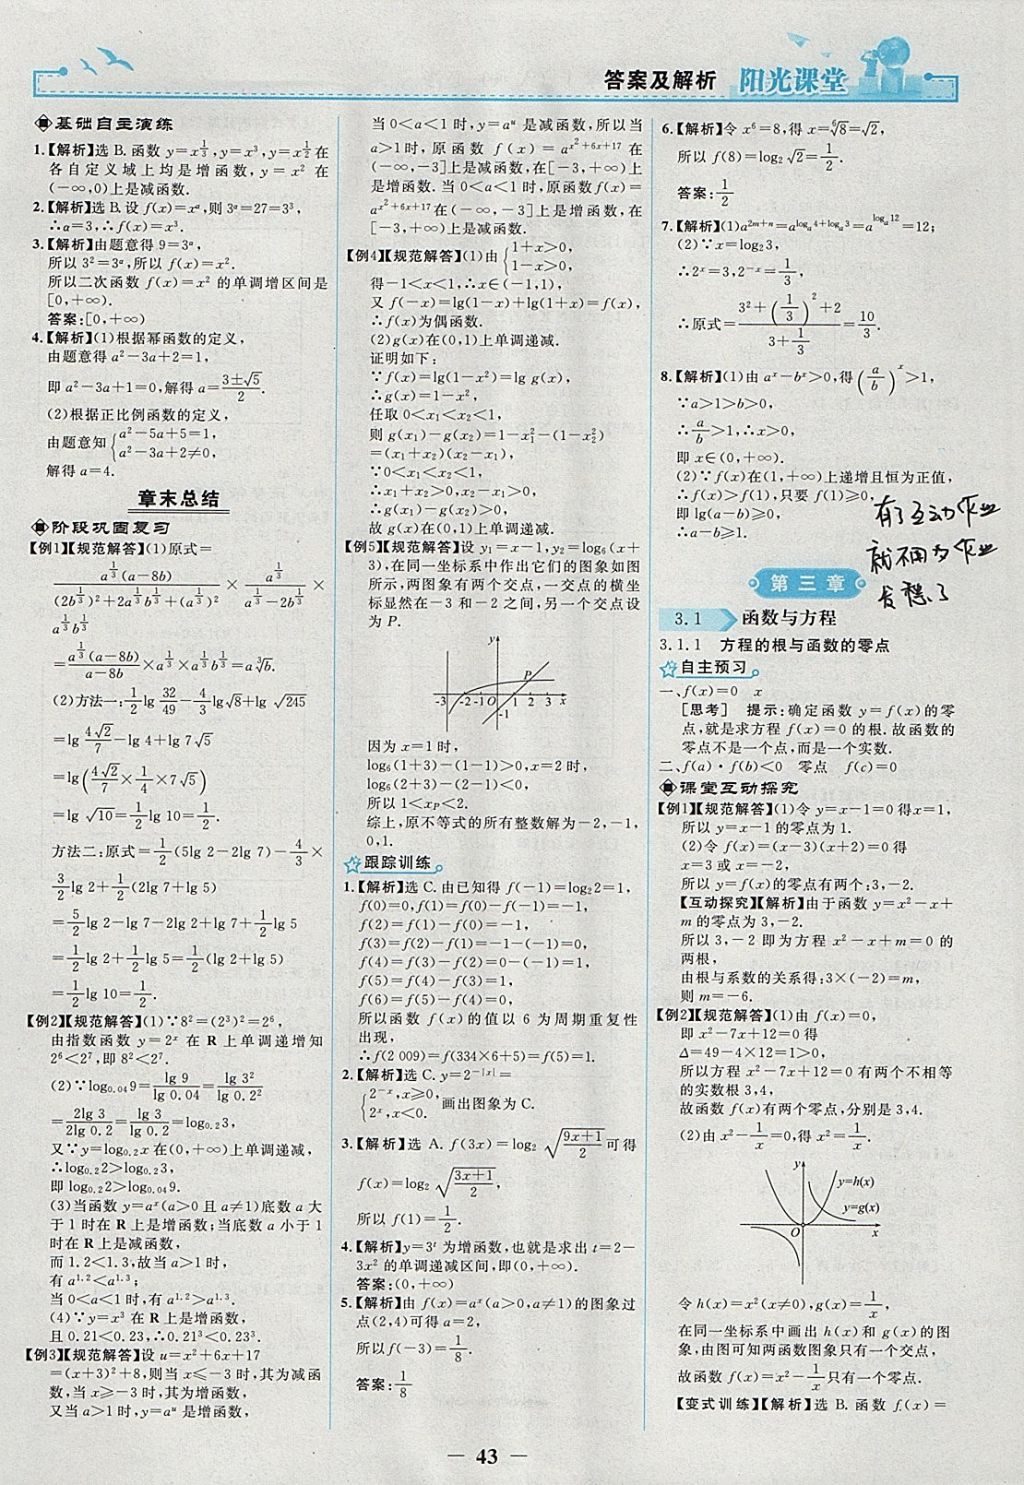 答案及解析 阳光课堂
基础自主演练
1.【解析】选 B. 函数 y=x^{1/3}, y=x³, y=x^{1/2} 在
各自定义域上均是增函数, y=x² 在
(-∞,0)上是减函数.
2.【解析】选 B. 设 f(x)=x^α, 则 3^α=27=3³,
∴α=3, ∴f(x)=x³.
3.【解析】由题意得 9=3^α,
所以 3²=3^α, 所以 f(x)=x².
所以二次函数 f(x)=x² 的单调增区间是
[0,+∞).
答案:[0,+∞)
4.【解析】(1)根据幂函数的定义,
由题意得 a²-3a+2=1,
即 a²-3a+1=0, 解得 a=(3±√5)/2.
(2)根据正比例函数的定义,
由题意知{a²-5a+5=1,
a²-3a+2≠0,
解得 a=4.
章末总结
阶段巩固复习
【例1】【规范解答】(1)原式=
a^{1/3}(a-8b)/((2b^{1/3})²+2a^{1/3}b^{1/3}+(a^{1/3})²) × a^{1/3}/(a^{1/3}-2b^{1/3}) ×
a^{1/3}b^{1/3}
=a^{1/3}(a-8b)/(a-8b)×a^{1/3}×a^{1/3}b^{1/3}=a∛b.
(2)方法一:1/2 lg 32/49-4/3 lg√8+lg √245
=lg 4√2/7-lg 4+lg 7√5
=lg(4√2/7×1/4×7√5)
=lg √10=1/2 lg 10=1/2.
方法二:原式=1/2(5lg 2-2lg 7)-4/3×
3/2 lg 2+1/2(2lg 7+lg 5)
=5/2 lg 2-lg 7-2lg 2+lg 7+1/2 lg 5
=1/2 lg 2+1/2 lg 5=1/2(lg 2+lg 5)
=1/2 lg 10=1/2.
【例2】【规范解答】(1)∵8²=(2³)²=2⁶,
由指数函数 y=2^x 在 R 上单调递增知
2⁶<2⁷, 即 8²<2⁷.
(2)∵log_{0.04}9=lg 9/lg 0.04=lg 3²/lg 0.2²
=2lg 3/2lg 0.2=lg 3/lg 0.2=log_{0.2}3,
又∵y=log_{0.2}x 在(0,+∞)上单调递减,
∴log_{0.2}2>log_{0.2}3,
即 log_{0.2}2>log_{0.04}9.
(3)当函数 y=a^x(a>0 且 a≠1)底数 a 大
于 1 时在 R 上是增函数;当底数 a 小于 1
时在 R 上是减函数,
而 1.2<1.3, 故当 a>1 时,
有 a^{1.2}<a^{1.3};
当 0<a<1 时, 有 a^{1.2}>a^{1.3}.
(4)∵y=x³ 在 R 上是增函数,
且 0.21<0.23, ∴0.21³<0.23³.
【例3】【规范解答】设 u=x²+6x+17
=(x+3)²+8, 则当 x≤-3 时, 其为减函
数, 当 x≥-3 时, 其为增函数,
又当 a>1 时, y=a^u 是增函数,
当 0<a<1 时, y=a^u 是减函数, 所以当
a>1时, 原函数 f(x)=a^{x²+6x+17} 在
(-∞,-3]上是减函数, 在[-3,+∞)上
是增函数. 当 0<a<1 时, 原函数 f(x)=
a^{x²+6x+17}在(-∞,-3]上是增函数, 在
[-3,+∞)上是减函数.
【例4】【规范解答】(1)由{1+x>0,
1-x>0,
得-1<x<1, ∴x∈(-1,1),
又 f(-x)=lg(1-x)+lg(1+x)=f(x),
∴f(x)为偶函数.
(2)g(x)在(0,1)上单调递减.
证明如下:
∵f(x)=lg(1-x²)=lg g(x),
∴g(x)=1-x²,
任取 0<x₁<x₂<1,
则 g(x₁)-g(x₂)=1-x₁²-(1-x₂²)
=(x₁+x₂)(x₂-x₁),
∵0<x₁<x₂<1,
∴x₁+x₂>0, x₂-x₁>0,
∴g(x₁)-g(x₂)>0,
故 g(x)在(0,1)上单调递减.
【例5】【规范解答】设 y₁=x-1, y₂=log₆(x+
3), 在同一坐标系中作出它们的图象如图
所示, 两图象有两个交点, 一交点的横坐
标显然在-3 和-2 之间, 另一个交点设
为 P.
y
P
-3 -2 -1 O 1 2 3 x
-1
因为 x=1 时,
log₆(1+3)-(1-1)>0, x=2 时,
log₆(2+3)-(2-1)<0,
所以 1<x_P<2.
综上, 原不等式的所有整数解为-2,-1,
0,1.
跟踪训练
1.【解析】选 C. 由已知得 f(-1)=log₂2=1,
f(0)=0, f(1)=f(0)-f(-1)=-1,
f(2)=f(1)-f(0)=-1,
f(3)=f(2)-f(1)=-1-(-1)=0,
f(4)=f(3)-f(2)=0-(-1)=1,
f(5)=f(4)-f(3)=1,
f(6)=f(5)-f(4)=0,
所以函数 f(x)的值以 6 为周期重复性
出现,
∴f(2 009)=f(334×6+5)=f(5)=1.
2.【解析】选 C. y=2^{-|x|}=
{2^{-x}, x≥0,
2^x, x<0. 画出图象为 C.
3.【解析】选 A. f(3x)=log₂ √((9x+1)/2) 可得
f(x)=log₂ √((3x+1)/2),
所以 f(1)=1/2.
4.【解析】y=3^t 为增函数, 也就是求出 t=2-
3x² 的单调递减区间, 即(0,+∞).
答案:(0,+∞)
5.【解析】由 f(x)=a^x(a>0,a≠1)的图象过
点(2,4)可得 a=2,
所以 f(-3)=1/8.
答案:1/8
6.【解析】令 x⁶=8, 得 x=⁶√8=√2,
所以 f(8)=log₂ √2=1/2.
答案:1/2
7.【解析】(1)a^{2m+n}=a^{log_a 4+log_a 3}=a^{log_a 12}=12;
(2)∵x=log₂3,
∴2^x=3, 2^{-x}=1/3,
∴原式=(3²+(1/3)²+2)/(3+1/3)=10/3.
8.【解析】(1)由 a^x-b^x>0, 得(a/b)^x>1,
∵a>1>b>0,
∴a/b>1, ∴x>0,
即 x∈(0,+∞).
(2)∵f(x)在(1,+∞)上递增且恒为正值,
∴f(x)>f(1), 只要 f(1)≥0,
即 lg(a-b)≥0,
∴a-b≥1.
有了互动作业
就不用为作业
发愁了
第三章
3.1 函数与方程
3.1.1 方程的根与函数的零点
自主预习
一、f(x)=0 x
[思考] 提示:确定函数 y=f(x)的零
点, 就是求方程 f(x)=0 的根. 故函数的
零点不是一个点, 而是一个实数.
二、f(a)·f(b)<0 零点 f(c)=0
课堂互动探究
【例1】【规范解答】(1)令 y=x-1=0得x=1,
所以 y=x-1 的零点为 1.
(2)令 f(x)=(x-3)(x+2)=0得
x=3或 x=-2,
所以 y=f(x)的零点有两个:3,-2.
【互动探究】【解析】由于函数 y=x²-x+
m 的零点为 3,-2.
所以 3,-2 即为方程 x²-x+m=0 的
两根,
由根与系数的关系得:3×(-2)=m,
则 m=-6.
【例2】【规范解答】(1)由 f(x)=0,
即 x²-7x+12=0 得
Δ=49-4×12=1>0,
所以方程 x²-7x+12=0 有两个不相等
的实数根 3,4,
故函数 f(x)有两个零点, 分别是 3,4.
(2)由 x²-1/x=0, 得 x²=1/x.
y
y=h(x)
y=g(x)
O x
令 h(x)=x²(x≠0), g(x)=1/x,
在同一坐标系中画出 h(x)和 g(x)的图
象, 由图可知两函数图象只有一个交点,
故函数 f(x)=x²-1/x只有一个零点.
【变式训练】【解析】选 B. 函数 f(x)=
43